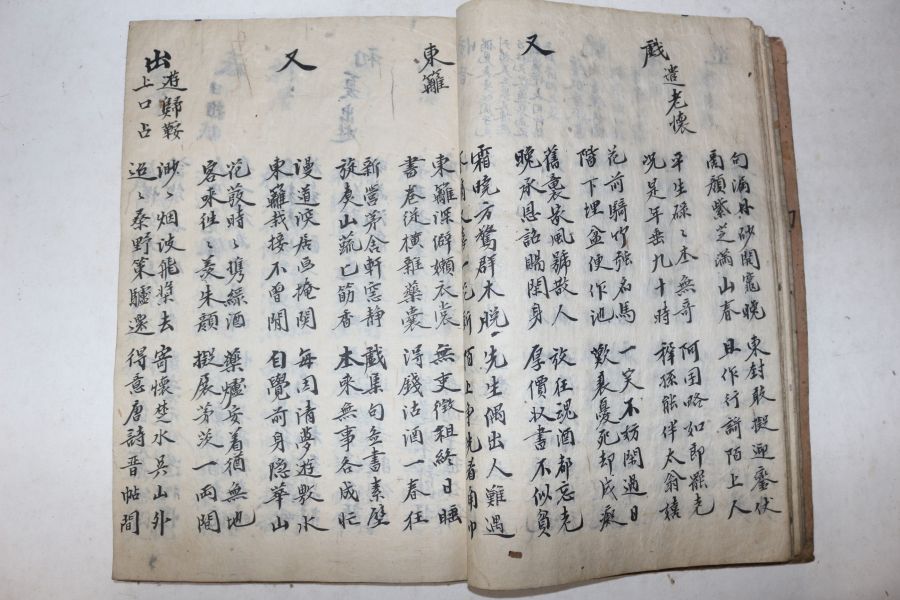 句漏丹砂開竈晚 東封敢擬迎鑾伏
商顏紫芝滿山春 且作行謌陌上人
戲遣老懷
平生碌碌本無奇 阿囝略如郎罷老
況是年垂九十時 稚孫能伴太翁嬉
花前騎竹強名馬 一笑不妨閑過日
階下埋盆便作池 歎衰憂死却成癡
又
舊裏家風號散人 放狂酒都忘老
晚承恩詔賜閑身 厚價收書不似貧
霜曉方驚群木脫 先生偶出人難遇
陌上爭先看角巾
東籬
東籬深僻嬾衣裳 無吏徵租終日睡
書卷從橫雜藥囊 得錢沽酒一春狂
新營茅舍軒窓靜 戲集句圖書素壁
山蔬匕筯香 本來無事各成忙
又
漫道深居晝掩関 每因清夢遊敷水
東籬栽接不曾閒 自覺前身隐華山
花發時〻携綠酒 藥爐安着猶無地
客來往〻羨朱顏 擬展茅茨一兩間
出遊歸鞍上口占
渺〻烟波飛槳去 寄懷楚水吳山外
迢〻桑野策驢還 得意唐詩晉帖間